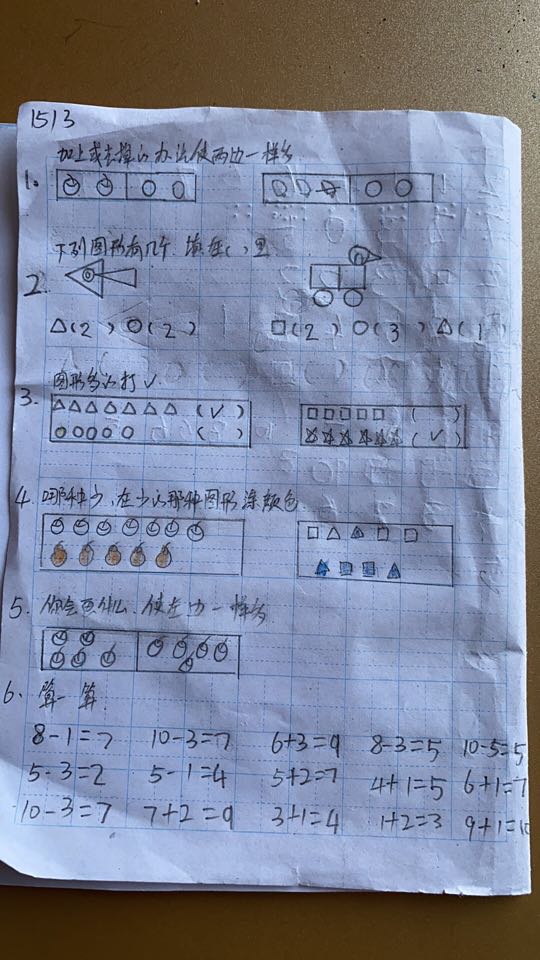 1513
加上或去掉的办法使两边一样多
1.
下列图形有几个.填在( )里
2.
△(2) ○(2) □(2) ○(3) △(1)
图形多的打✓.
3. (✓) ( )
( ) (✓)
4. 哪种少.在少的那种图形涂颜色
5. 你会 使左边一样多
6. 算一算.
8-1=7 10-3=7 6+3=9 8-3=5 10-5=5
5-3=2 5-1=4 5+2=7 4+1=5 6+1=7
10-3=7 7+2=9 3+1=4 1+2=3 9+1=10